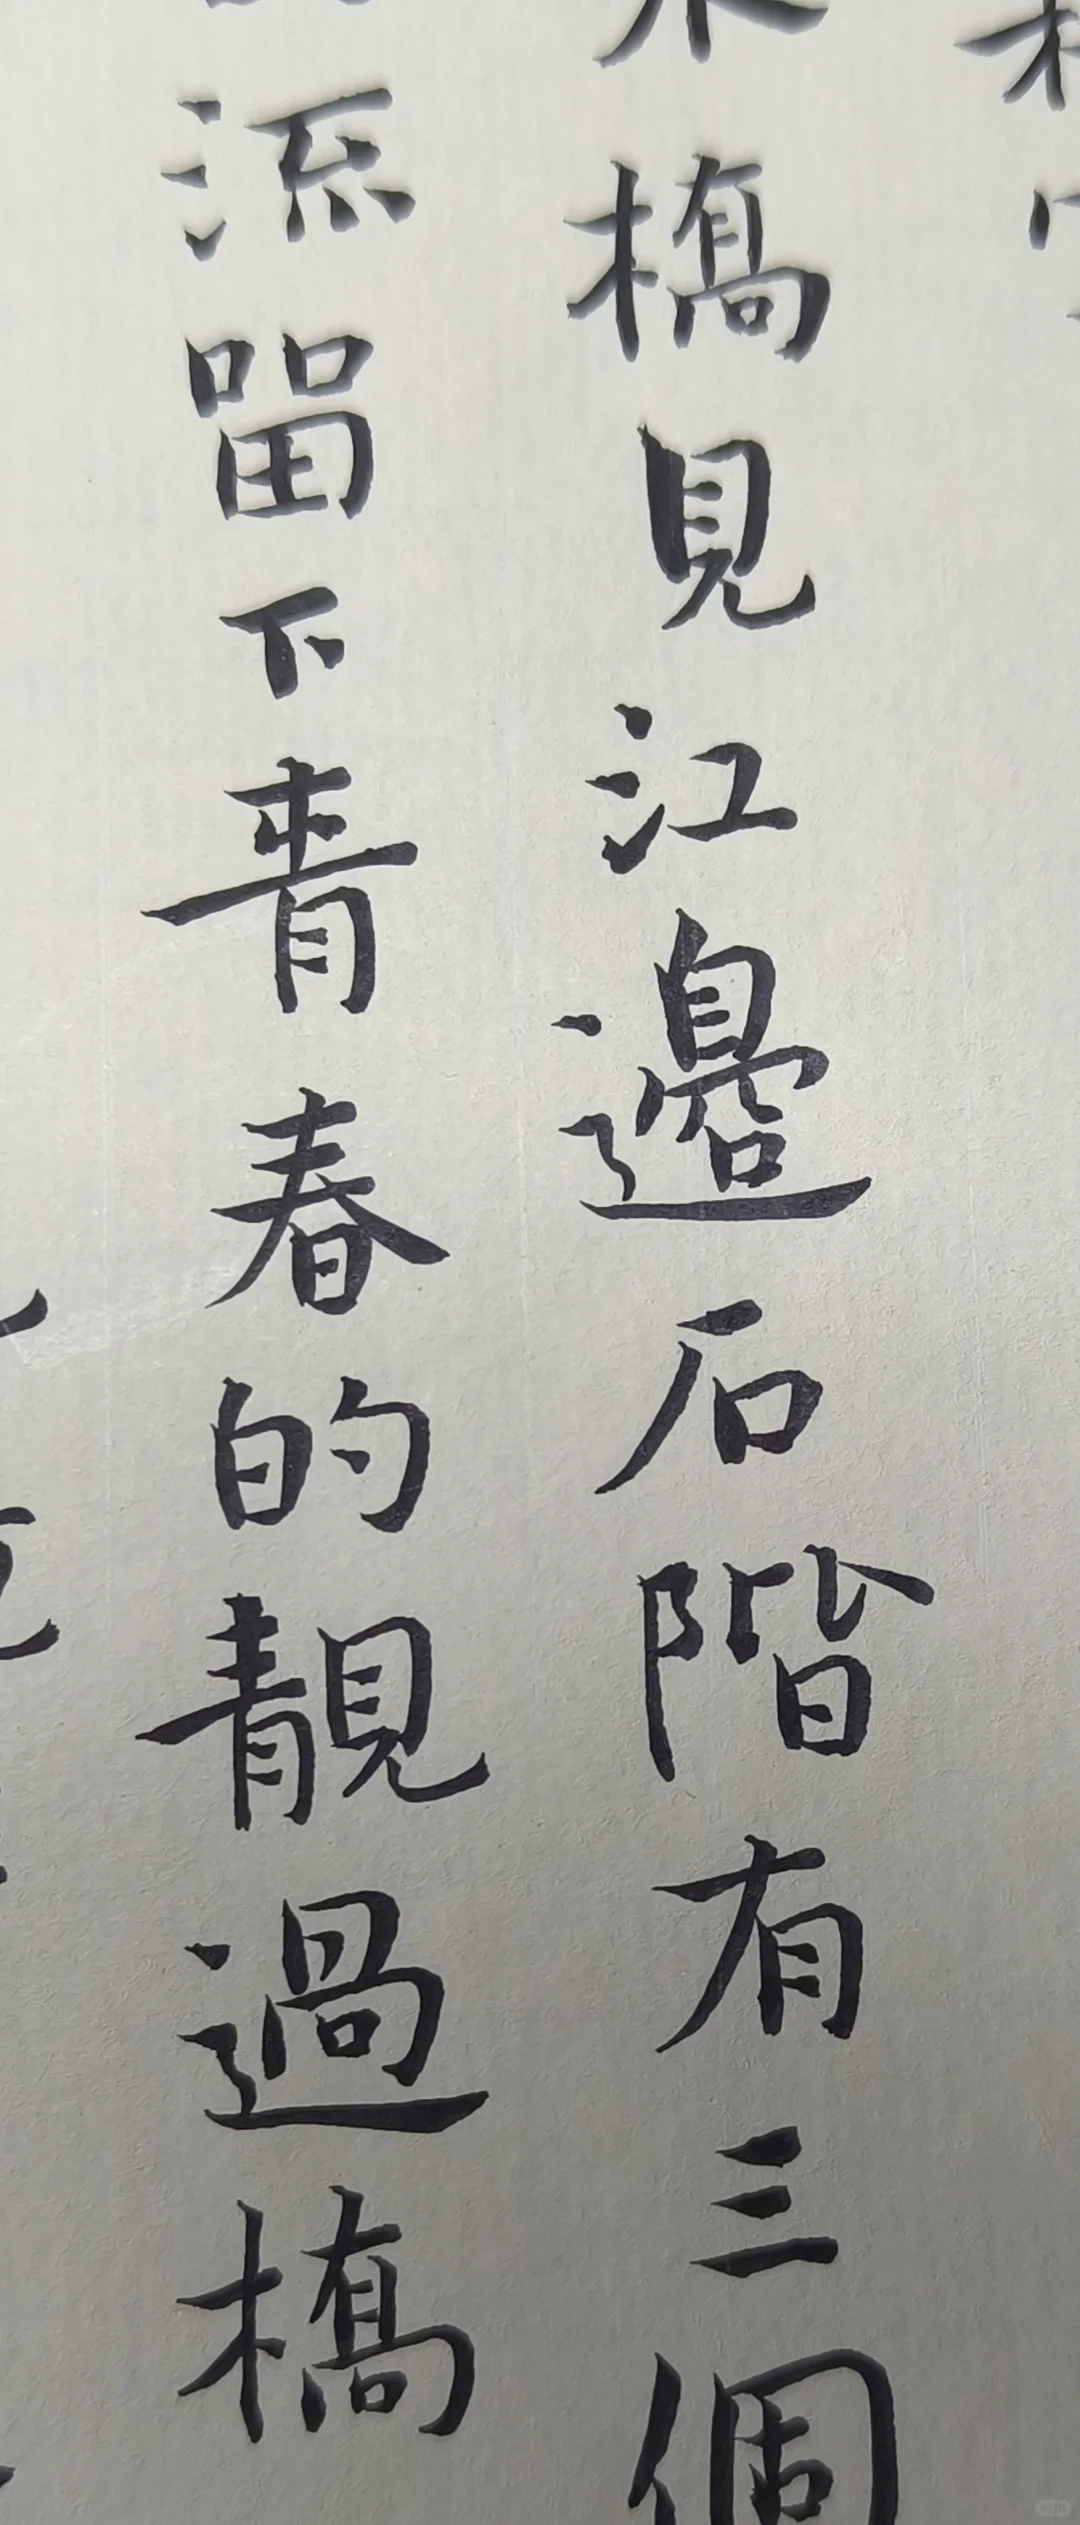 橋見江邊石階有三個
流畱下青春的靚過橋